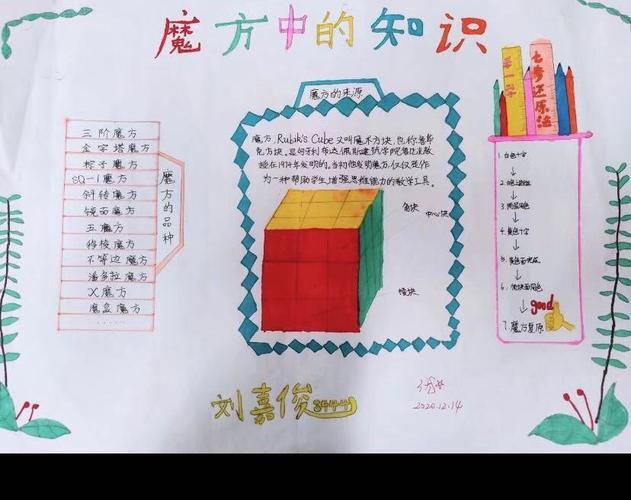 魔方中的知识
三阶魔方
金字塔魔方
粽子魔方
SQ-1魔方
斜转魔方
镜面魔方
五魔方
移棱魔方
不等边魔方
潘多拉魔方
X魔方
魔盒魔方
......
魔方的品种
魔方的来源
魔方,Rubik's Cube又叫魔术方块,也称鲁毕
克方块,是匈牙利布达佩斯建筑学院鲁比克教
授在1974年发明的。当初他发明魔方,仅仅是作
为一种帮助学生增强思维能力的教学工具。
角块
中心块
棱块
七步还原法
1.白色十字
↓
↓
↓
4.黄色十字
↓
↓
↓
good
7.魔方复原
刘嘉俊
2020.12.14